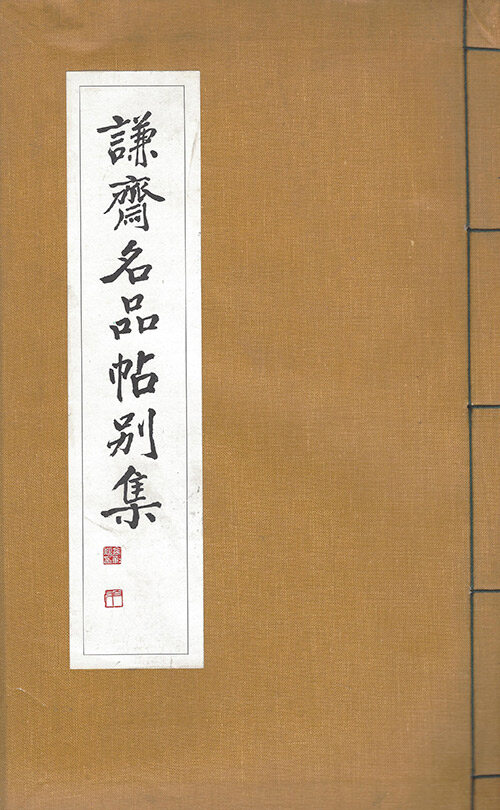 謙齋名品帖别集